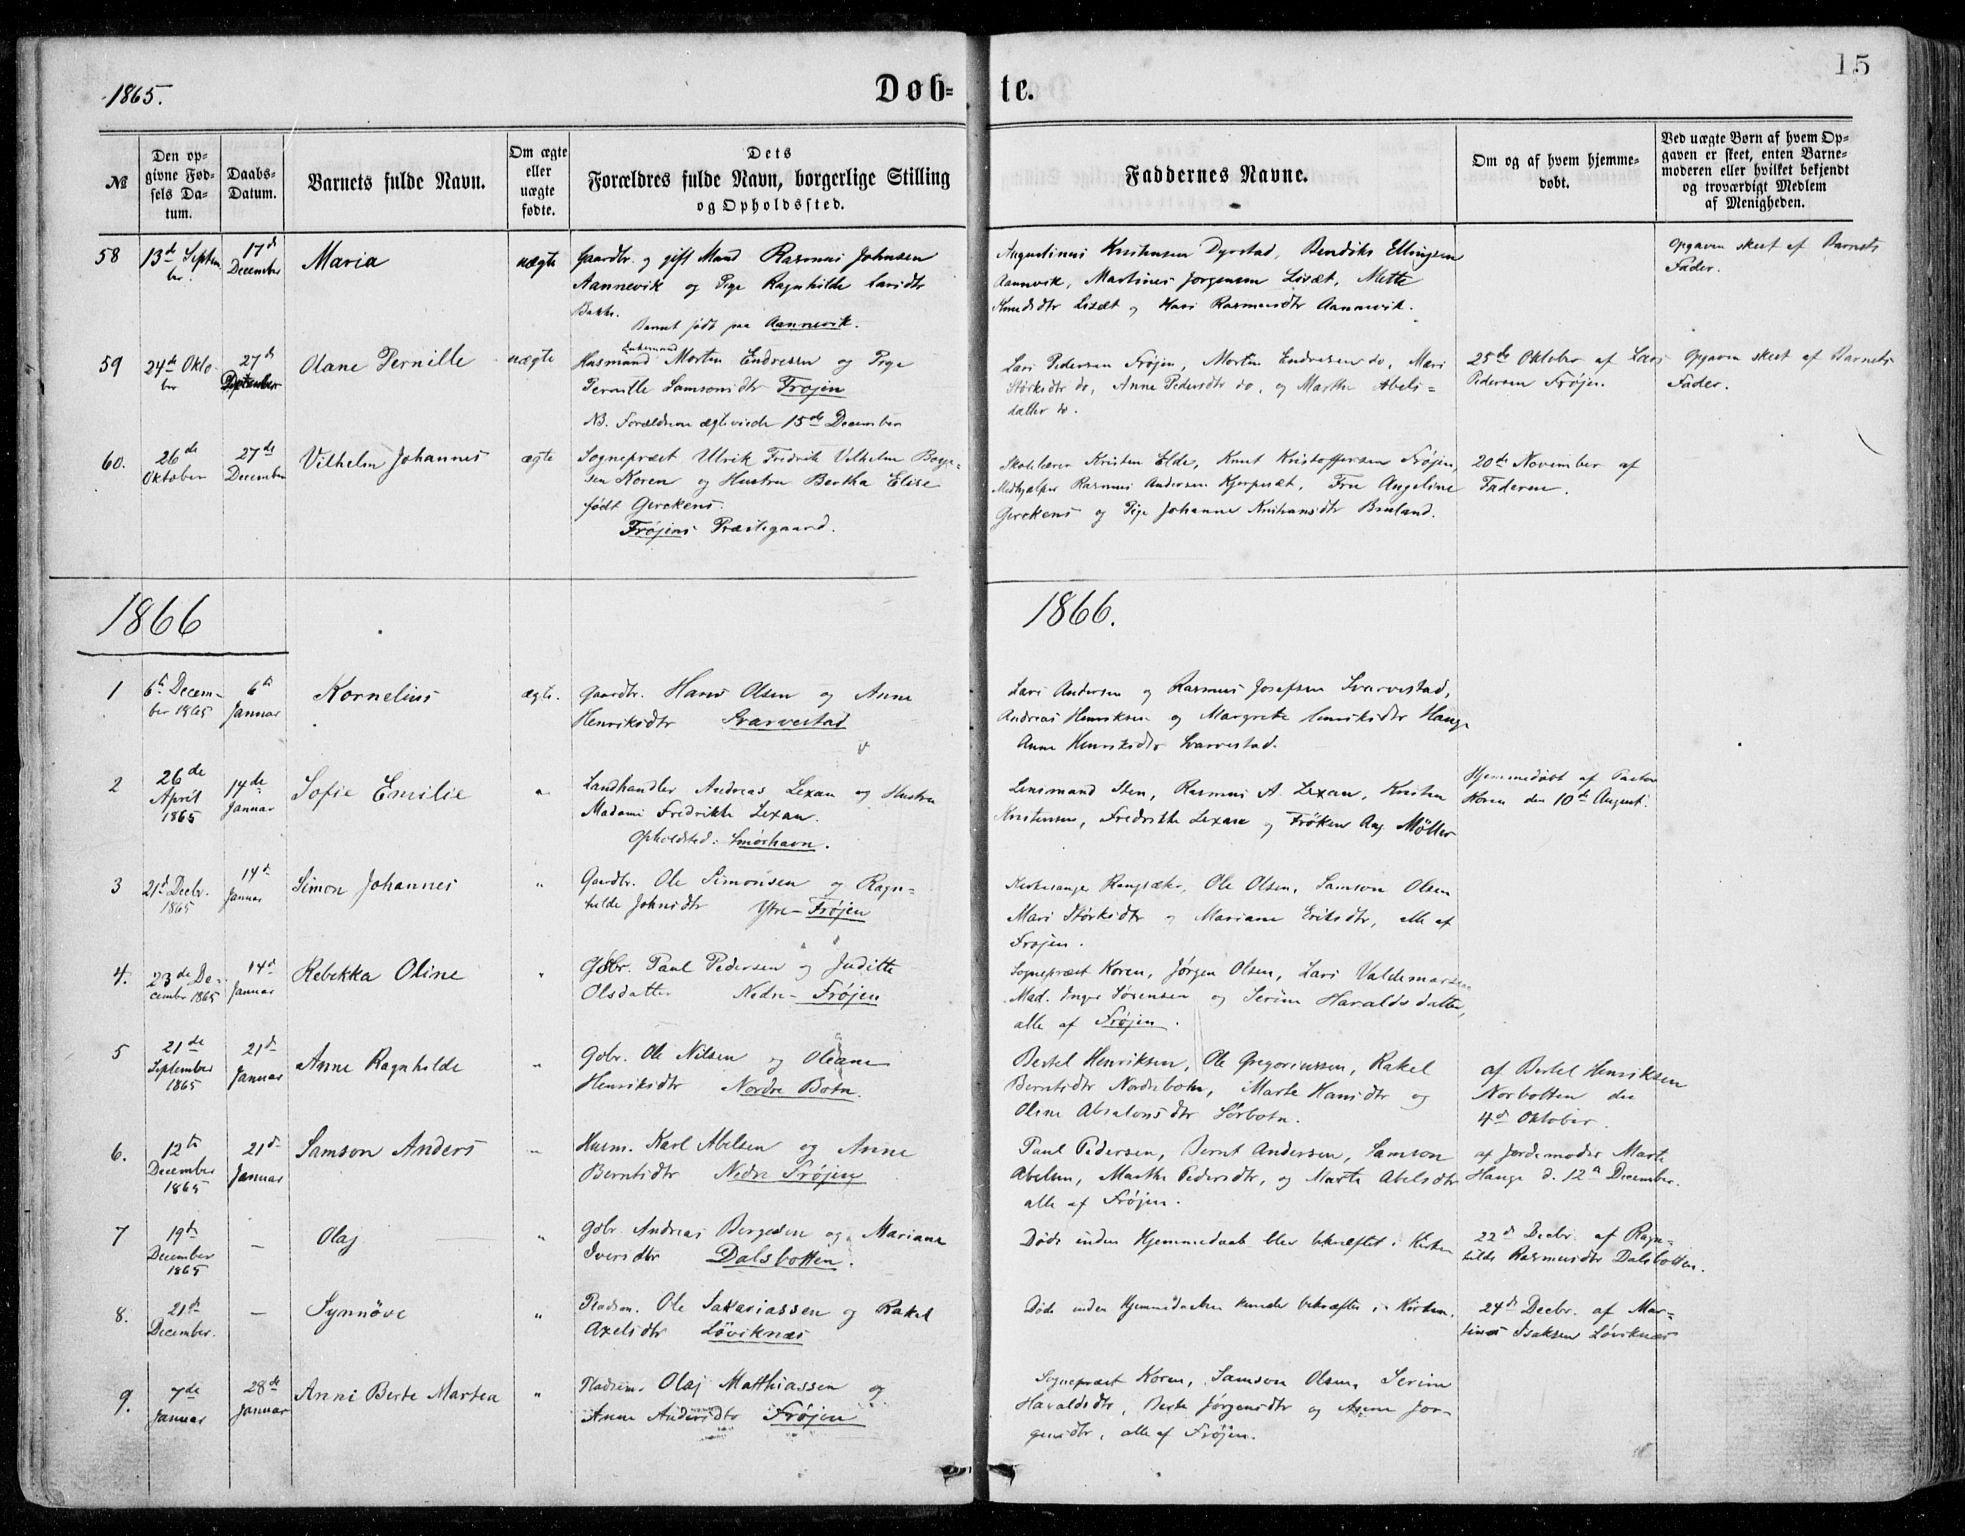 1865.
Døb-
te.
15
№
Den op-
givne Fød-
sels Da-
tum.
Daabs-
Datum.
Barnets fulde Navn.
Om ægte
eller
uægte
fødte.
Dets
Forældres fulde Navn, borgerlige Stilling
og Opholdssted.
Faddernes Navne.
Om og af hvem hjemme-
døbt.
Ved uægte Børn af hvem Op-
gaven er skeet, enten Barne-
moderen eller hvilket bekjendt
og troværdigt Medlem
af Menigheden.
58
13de Septem
ber.
17d
December
Maria
uægte
Gaardbr. og gift Mand Rasmus Johnsen
Aannevik og Pige Ragnhilde Larsdtr
Bakke.
Barnet født paa Aannevik.
Augustinus Kristensen Dyrstad, Bendiks Ellingsen
Aannevik, Martines Jørgensen Lisæt, Mette
Knudsdtr Lisæt og Kari Rasmusdtr Aannevik.
Opgaven skeet af Barnets
Fader.
59
24de Okto
ber
27d
December
Olane Pernille
uægte
Enkemand
Husmand Morten Endresen og Pige
Pernille Samsonsdtr Frøjen
NB. Forældrene ægteviede 15de December
Lars Pedersen Frøjen, Morten Endresen do, Mari
Størksdtr do, Anne Pedersdtr do, og Marthe Abels=
datter do.
25de Oktober af Lars
Pedersen Frøjen.
Opgaven skeet af Barnets
Fader.
60.
26de
Oktober
27de
December
Vilhelm Johannes
ægte
Sognepræst Ulrik Fredrik Vilhelm Børge=
sen Koren og Hustru Bertha Elise
født Gerckens.
Frøjens Præstegaard.
Skolelærer Kristen Elde, Knut Kristoffersen Frøjen,
Medhjælper Rasmus Andersen, Fru Angeline
Gerckens og Pige Johanne Bruland.
20de November af
Faderen.
1866
1866.
1
6te Decem-
ber 1865
6te
Januar
Kornelius
ægte.
Gaardbr. Hans Olsen og Anne
Henriksdtr Svarvestad
Lars Andersen og Rasmus Josefsen Svarvestad,
Andreas Henriksen og Margrete Henriksdtr Hauge
Anne Henriksdtr Svarvestad.
2
26de
April
1865
14de
Januar
Sofie Emilie
"
Landhandler Andreas Lexau og Hustru
Madame Fredrikke Lexau.
Opholdsted: Smørhavn.
Lensmand Sten, Rasmus A. Lexau, Kristen
Kristensen, Fredrikke Lexau og Frøken Aug. Möller
Hjemmedøbt af Pastor
Koren den 10de August.
3
21d Decbr.
1865
14d
Januar
Simon Johannes
"
Gardbr. Ole Simonsen og Ragn=
hilde Johnsdtr Ytre-Frøjen
Kirkesanger, Ole Olsen, Samson Olsen
Mari Størksdtr og Mariane Eriksdtr, alle af
Frøjen.
4.
23de De-
cember 1865
14d
Januar
Rebekka Oline
"
Gbr. Paul Pedersen og Juditte
Olsdatter Nedre-Frøjen
Sognepræst Koren, Jørgen Olsen, Lars Valdemarsen
Mad. Inger Sørensen og Serine Haraldsdatter,
alle af Frøjen.
5
21de
September
1865
21d
Januar
Anne Ragnhilde
"
Gbr. Ole Nilsen og Oleane
Henriksdtr Nordre Botn.
Bertel Henriksen, Ole Gregoriussen, Rakel
Berntsdtr Nordrebotn, Marte Hansdtr og
Oline Absalonsdtr Sørbotn.
af Bertel Henriksen
Norbotten den
4d Oktober.
6.
12te
December
1865
21d
Januar
Samson Anders
"
Husm. Karl Abelsen og Anne
Berntsdtr Nedre Frøjen
Paul Pedersen, Bernt Andersen, Samson
Abelsen, Marthe Pedersdtr, og Marte Abelsdtr
alle af Frøjen.
af Jordemoder Marte
Hauge d. 12d December.
7
19de
December
1865
-
Olaj
"
Gbr. Andreas Bergesen og Mariane
Iversdtr Dalsbotten.
Døde inden Hjemmedaab blev bekræftet i Kirken
22d Decbr. af Ragn=
hilde Rasmusdtr Dalsbotten.
8.
21de
December.
-
Synnöve
"
Pladsm. Ole Sakariassen og Rakel
Axelsdtr Løviknæs
Døde inden Hjemmedaaben kunde bekræftes i Kirken.
24de Decbr. af Mar=
tinus Isaksen Løviknæs
9.
7de
Januar
28de
Januar
Anni Berte Martea
"
Pladsm. Olaj Matthiassen og
Anne Andersdtr Frøjen
Sognepræst Koren, Samson Olsen, Serine
Haraldsdtr, Berte Jørgensdtr og Anne Jør-
gensdtr, alle af Frøjen.